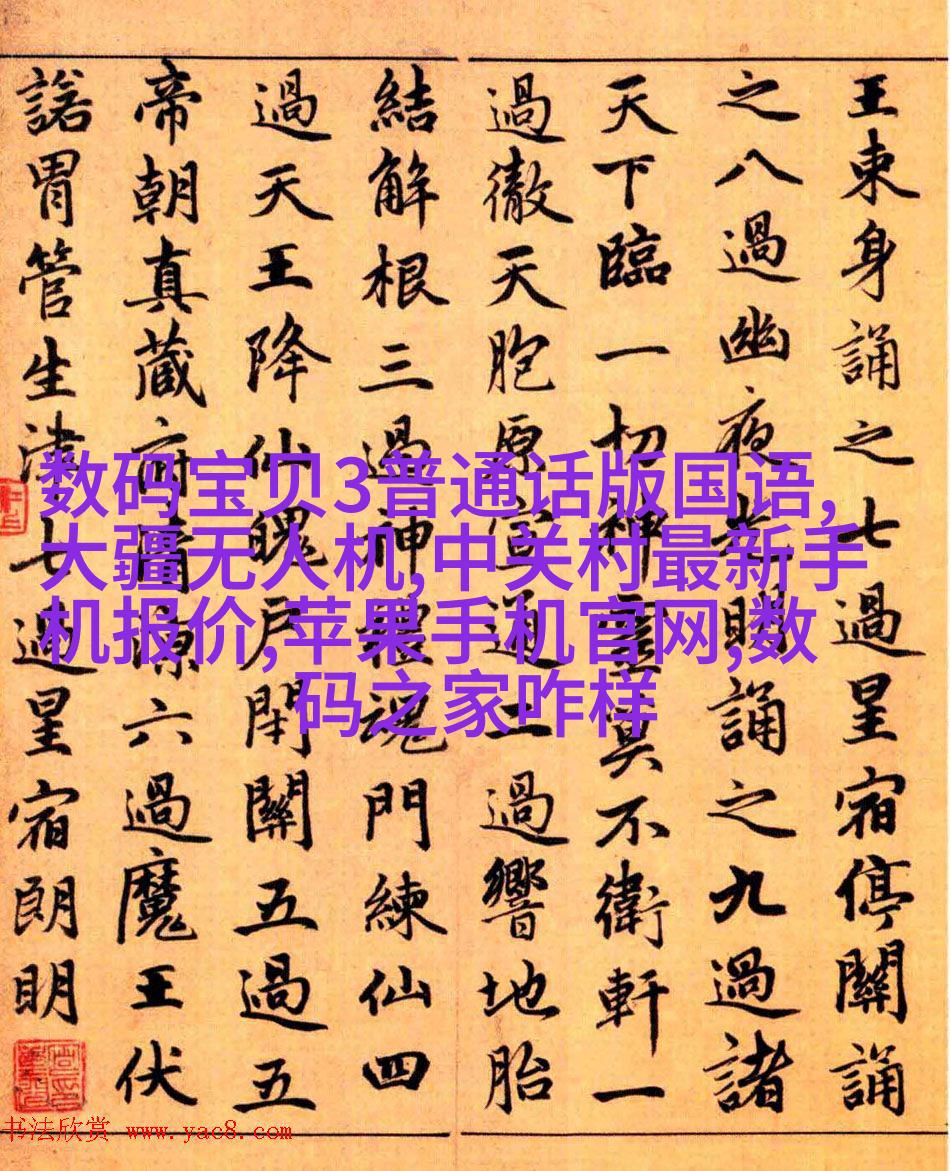 王東身誦之七過星宿停關誦
之八過幽夜誦之九過諸
天下臨一切神靈莫不衛軒一
過徹天胞原宣通二過響地胎
結解根三過神禮魂門練仙四
過天王降仙魄戶閇關五過五
帝朝真藏府清源六過魔王伏
諾胃管生津七過星宿朗明
数码宝贝3普通话版国语,
大疆无人机,中关村最新手
机报价,苹果手机官网,数
码之家咋样
书法欣赏 www.yac8.com